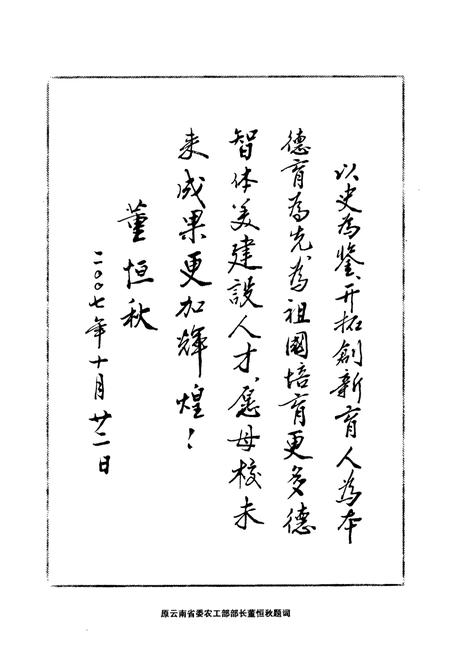 以史为鉴、开拓創新育人為本
德育為先、為祖國培育更多德
智体美建設人才、愿母校未
来成果更加輝煌！
董恒秋
二〇〇七年十月廿二日
原云南省委农工部部长董恒秋题词